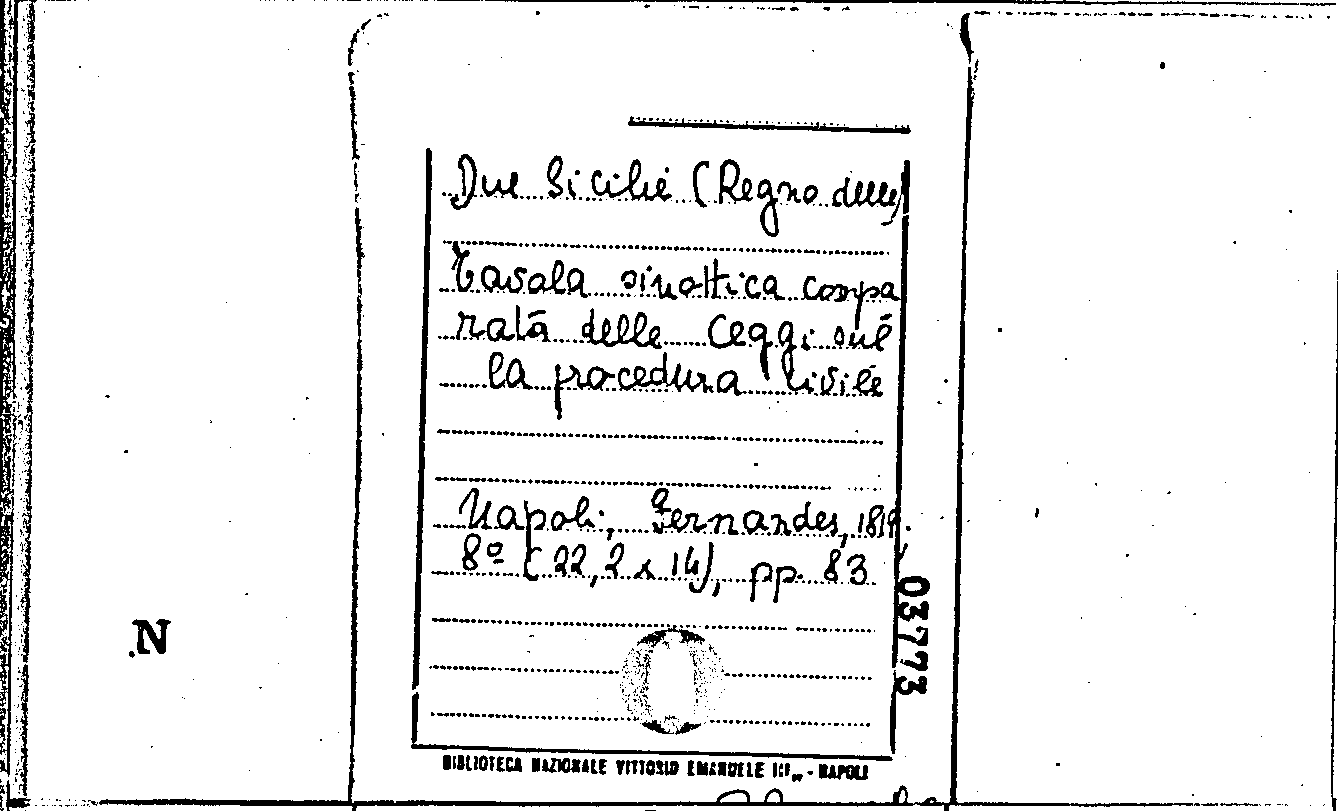 Due Sicilie (Regno delle)
Tavola sinottica compa
rata delle Leggi sul
la procedura civile
Napoli, Fernandes, 1819.
8º (22,2 x 14), pp. 83
03773
N
BIBLIOTECA NAZIONALE VITTORIO EMANUELE III - NAPOLI